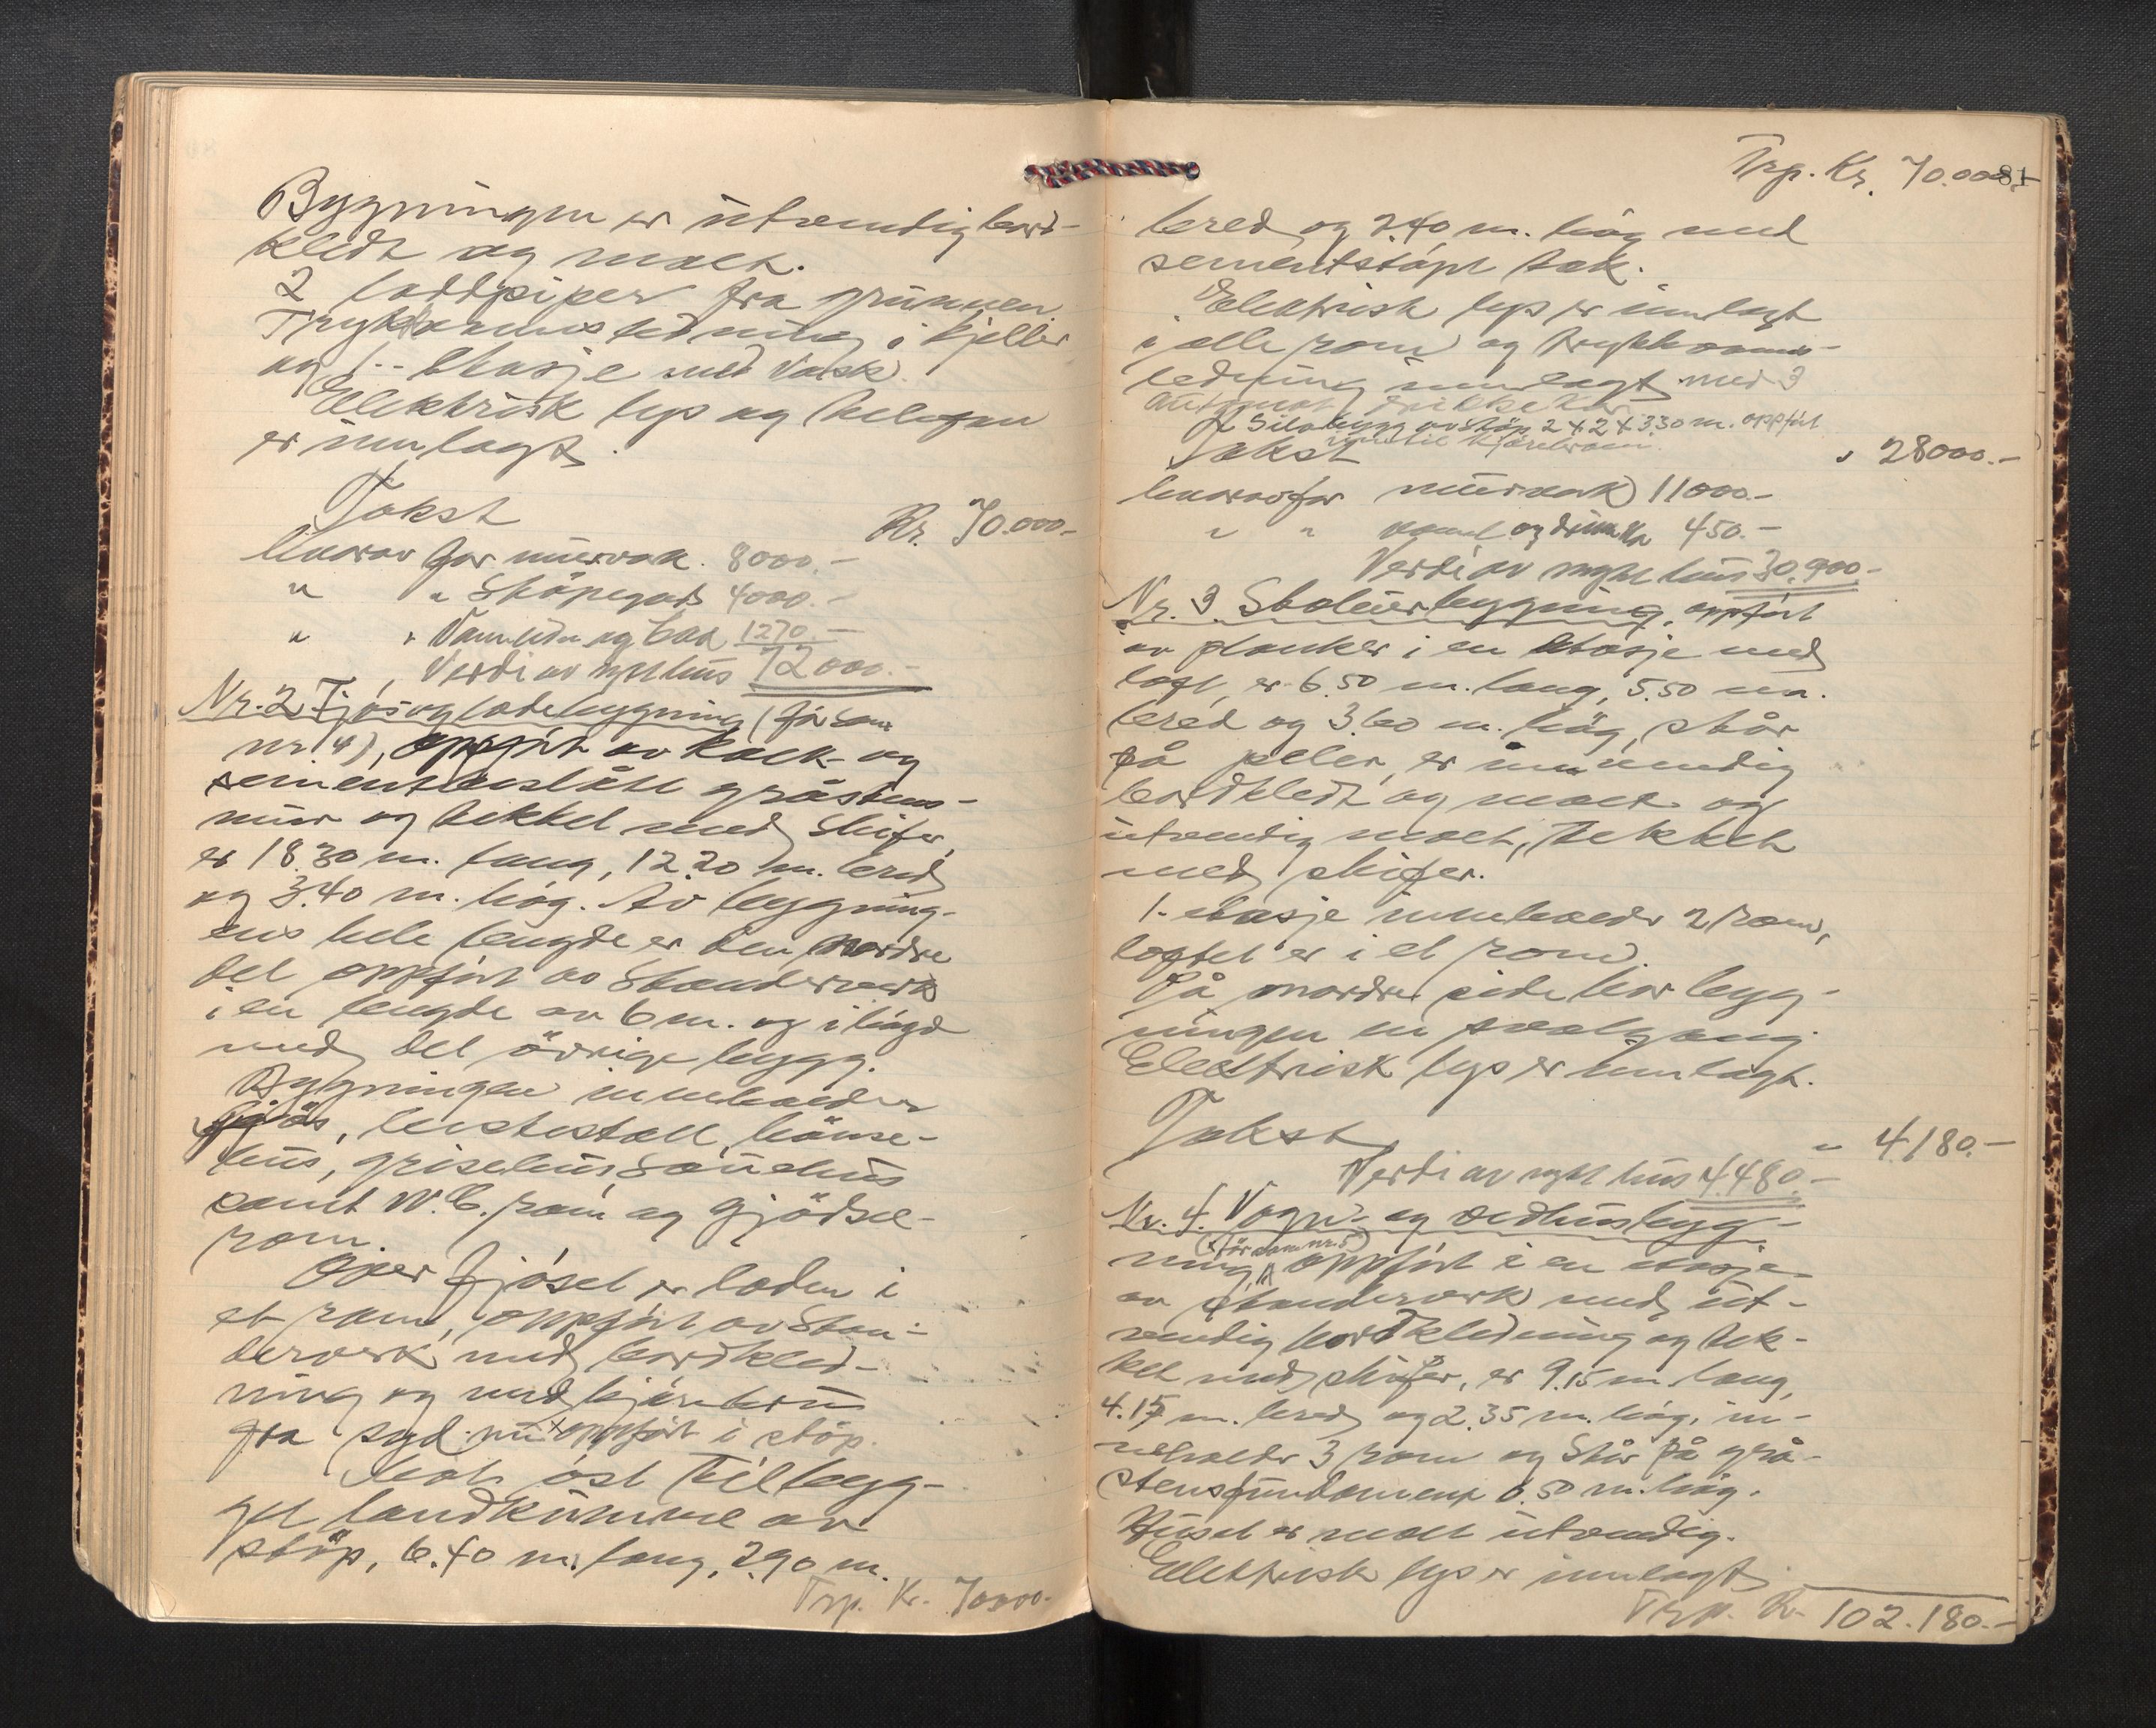 Bygningen er utvendig bord-
kledt og malt.
2 loddpiper fra grunnen.
Trykkvannsledning i kjeller
og 1. etasje med vask.
Elektrisk lys og telefon
er innlagt.
Takst Kr. 70.000.-
hvorav for murverk. 8000.-
" " Støpegods 4000.-
" " Vannledn og bad 1270.-
Verdi av nytt hus 72000.-
Nr. 2 Fjös og ladebygning (för som
nr. 4), oppfört av kalk- og
sementenslått gråstens-
mur og tekket med skifer,
er 18.30 m. lang, 12.20 m. bred
og 3.40 m. hög. Av bygning-
ens hele lengde er den nordre
del oppfört av Standerverk
i en lengde av 6 m. og i högd
med det övrige bygg.
Bygningen inneholder
fjös, hestestall, hönse-
hus, grisehus, Sauehus
samt W.C. rom og gjödsel-
rom.
Over fjöset er laden i
et rom, oppfört av Stan-
derverk med bordkled-
ning og med kjörebru
fra syd. nu oppfört i stöp.
Mot öst tilbyg-
get landkumme av
stöp, 6.40 m. lang, 2.90 m.
Trp. Kr. 70.000.-
Trp. Kr. 70.000.-
81
bred og 2.40 m. höy med
sementstöpt tak.
Elektrisk lys er innlagt
i alle rom og trykkvanns-
ledning innlagt med 3
automat drikkekar.
Silobygg av stöp 2 x 2 x 3.30 m. oppfört
inntil kjörebroen.
Takst " 28000.-
hvorav for murverk 11000.-
" " vannl og drikkekar 450.-
Verdi av nytt hus 30.900.-
Nr. 3. Stabursbygning, oppfört
av planker i en etasje med
loft, er 6.50 m. lang, 5.50 m.
bred og 3.60 m. hög, står
på peler, er innvendig
bordkledt og malt og
utvendig malt, tekket
med skifer.
1. etasje inneholder 2 rom,
loftet er i et rom.
På nordre side har byg-
ningen en svalgang.
Elektrisk lys er innlagt.
Takst " 4.180.-
Verdi av nytt hus 4.480.-
Nr. 4. Vogn- og vedhusbyg-
(för som nr. 5)
ning, oppfört i en etasje
av Standerverk med ut-
vendig bordkledning og tek-
ket med skifer, er 9.15 m lang,
4.15 m. bred og 2.35 m. hög, in-
neholder 3 rom og Står på grå-
stensfundament 0.50 m. hög.
Huset er malt utvendig.
Elektrisk lys er innlagt.
Trp. Kr. 102.180.-